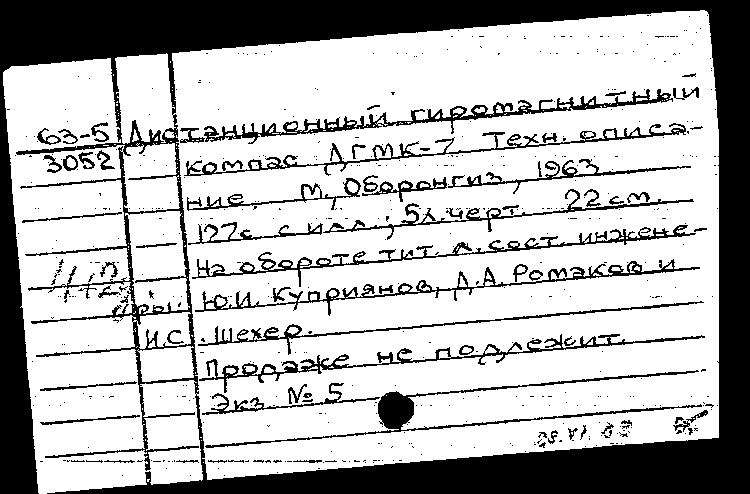 63-5 Дистанционный гиромагнитный
3052 компас ДГМК-7 Техн. описа-
ние. М., Оборонгиз, 1963
127с. с илл.; 5л. черт. 22 см.
На обороте тит. л. сост. инжене-
ры: Ю.И. Куприянов, Д.А. Ромаков и
И.С. Шехер.
Продаже не подлежит.
Экз № 5